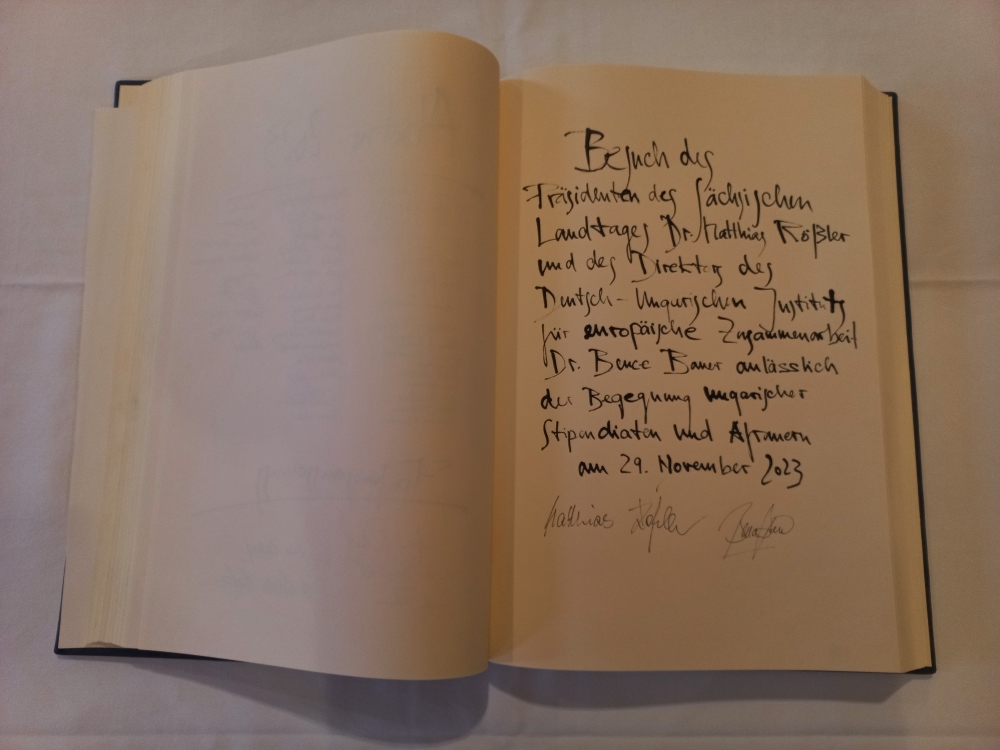 Besuch des
Präsidenten des Sächsischen
Landtages Dr. Matthias Rößler
und des Direktors des
Deutsch-Ungarischen Instituts
für europäische Zusammenarbeit
Dr. Bence Bauer anlässlich
der Begegnung ungarischer
Stipendiaten und Afranern
am 29. November 2023
Matthias Rößler